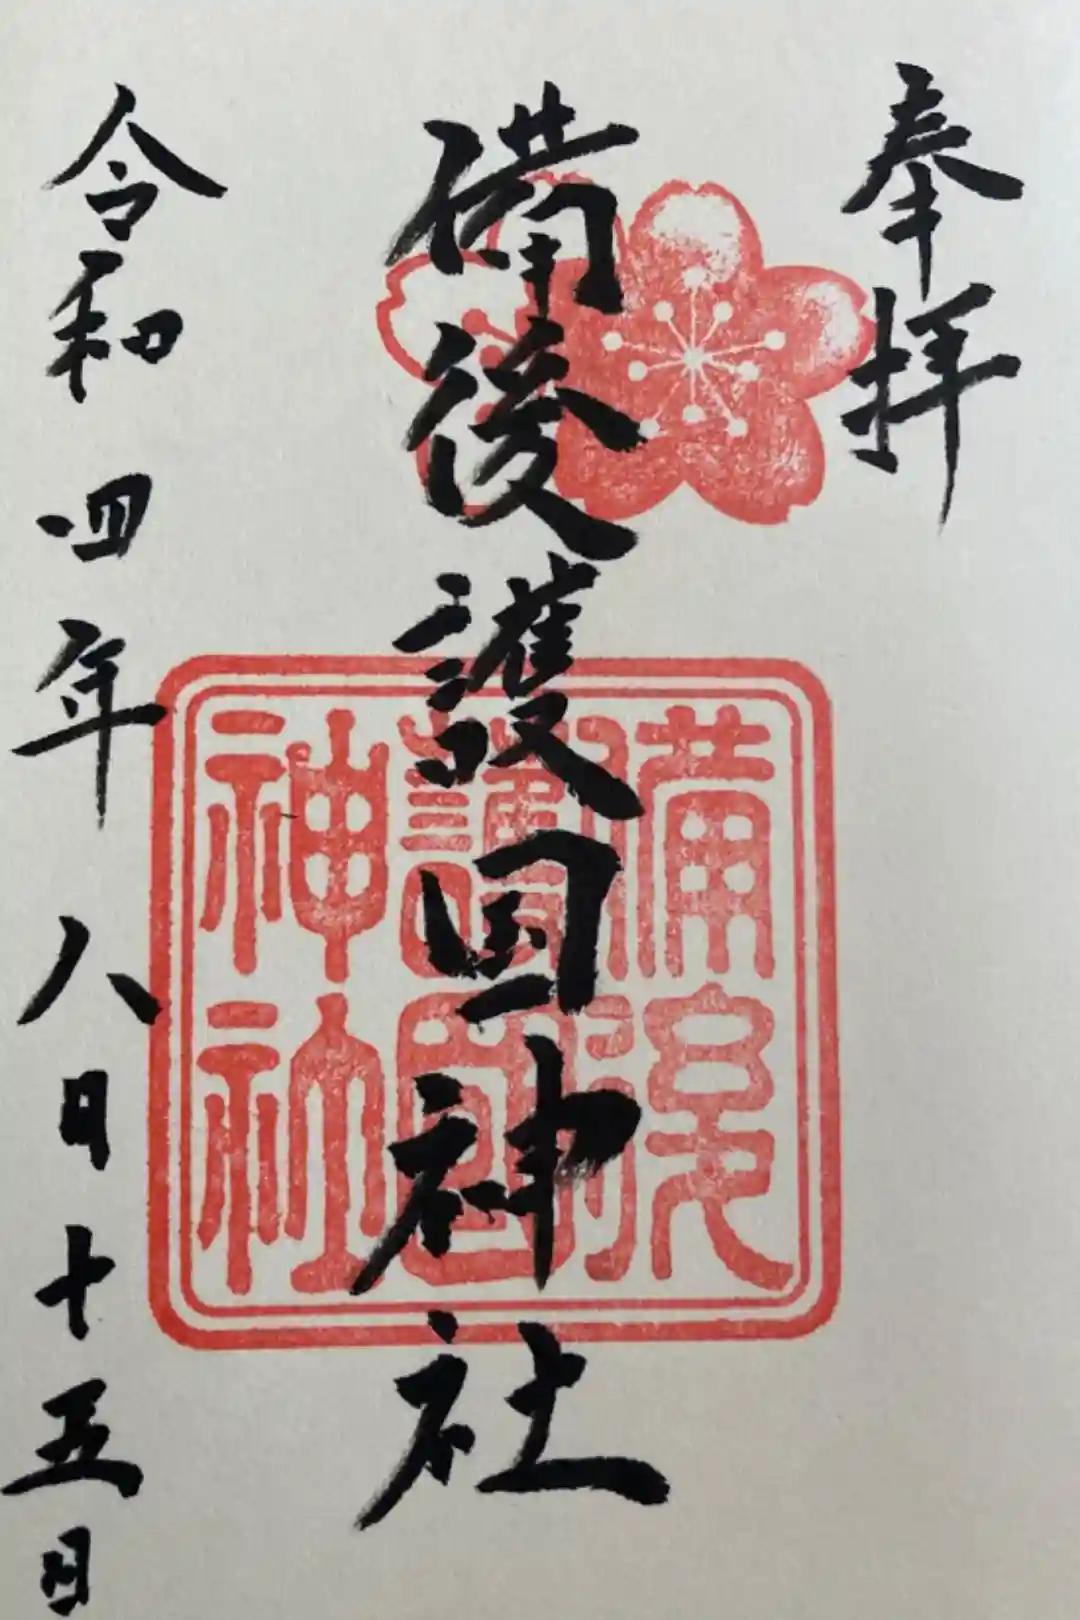 奉拝
備後護国神社
備後
護國
神社
令和四年八月十五日